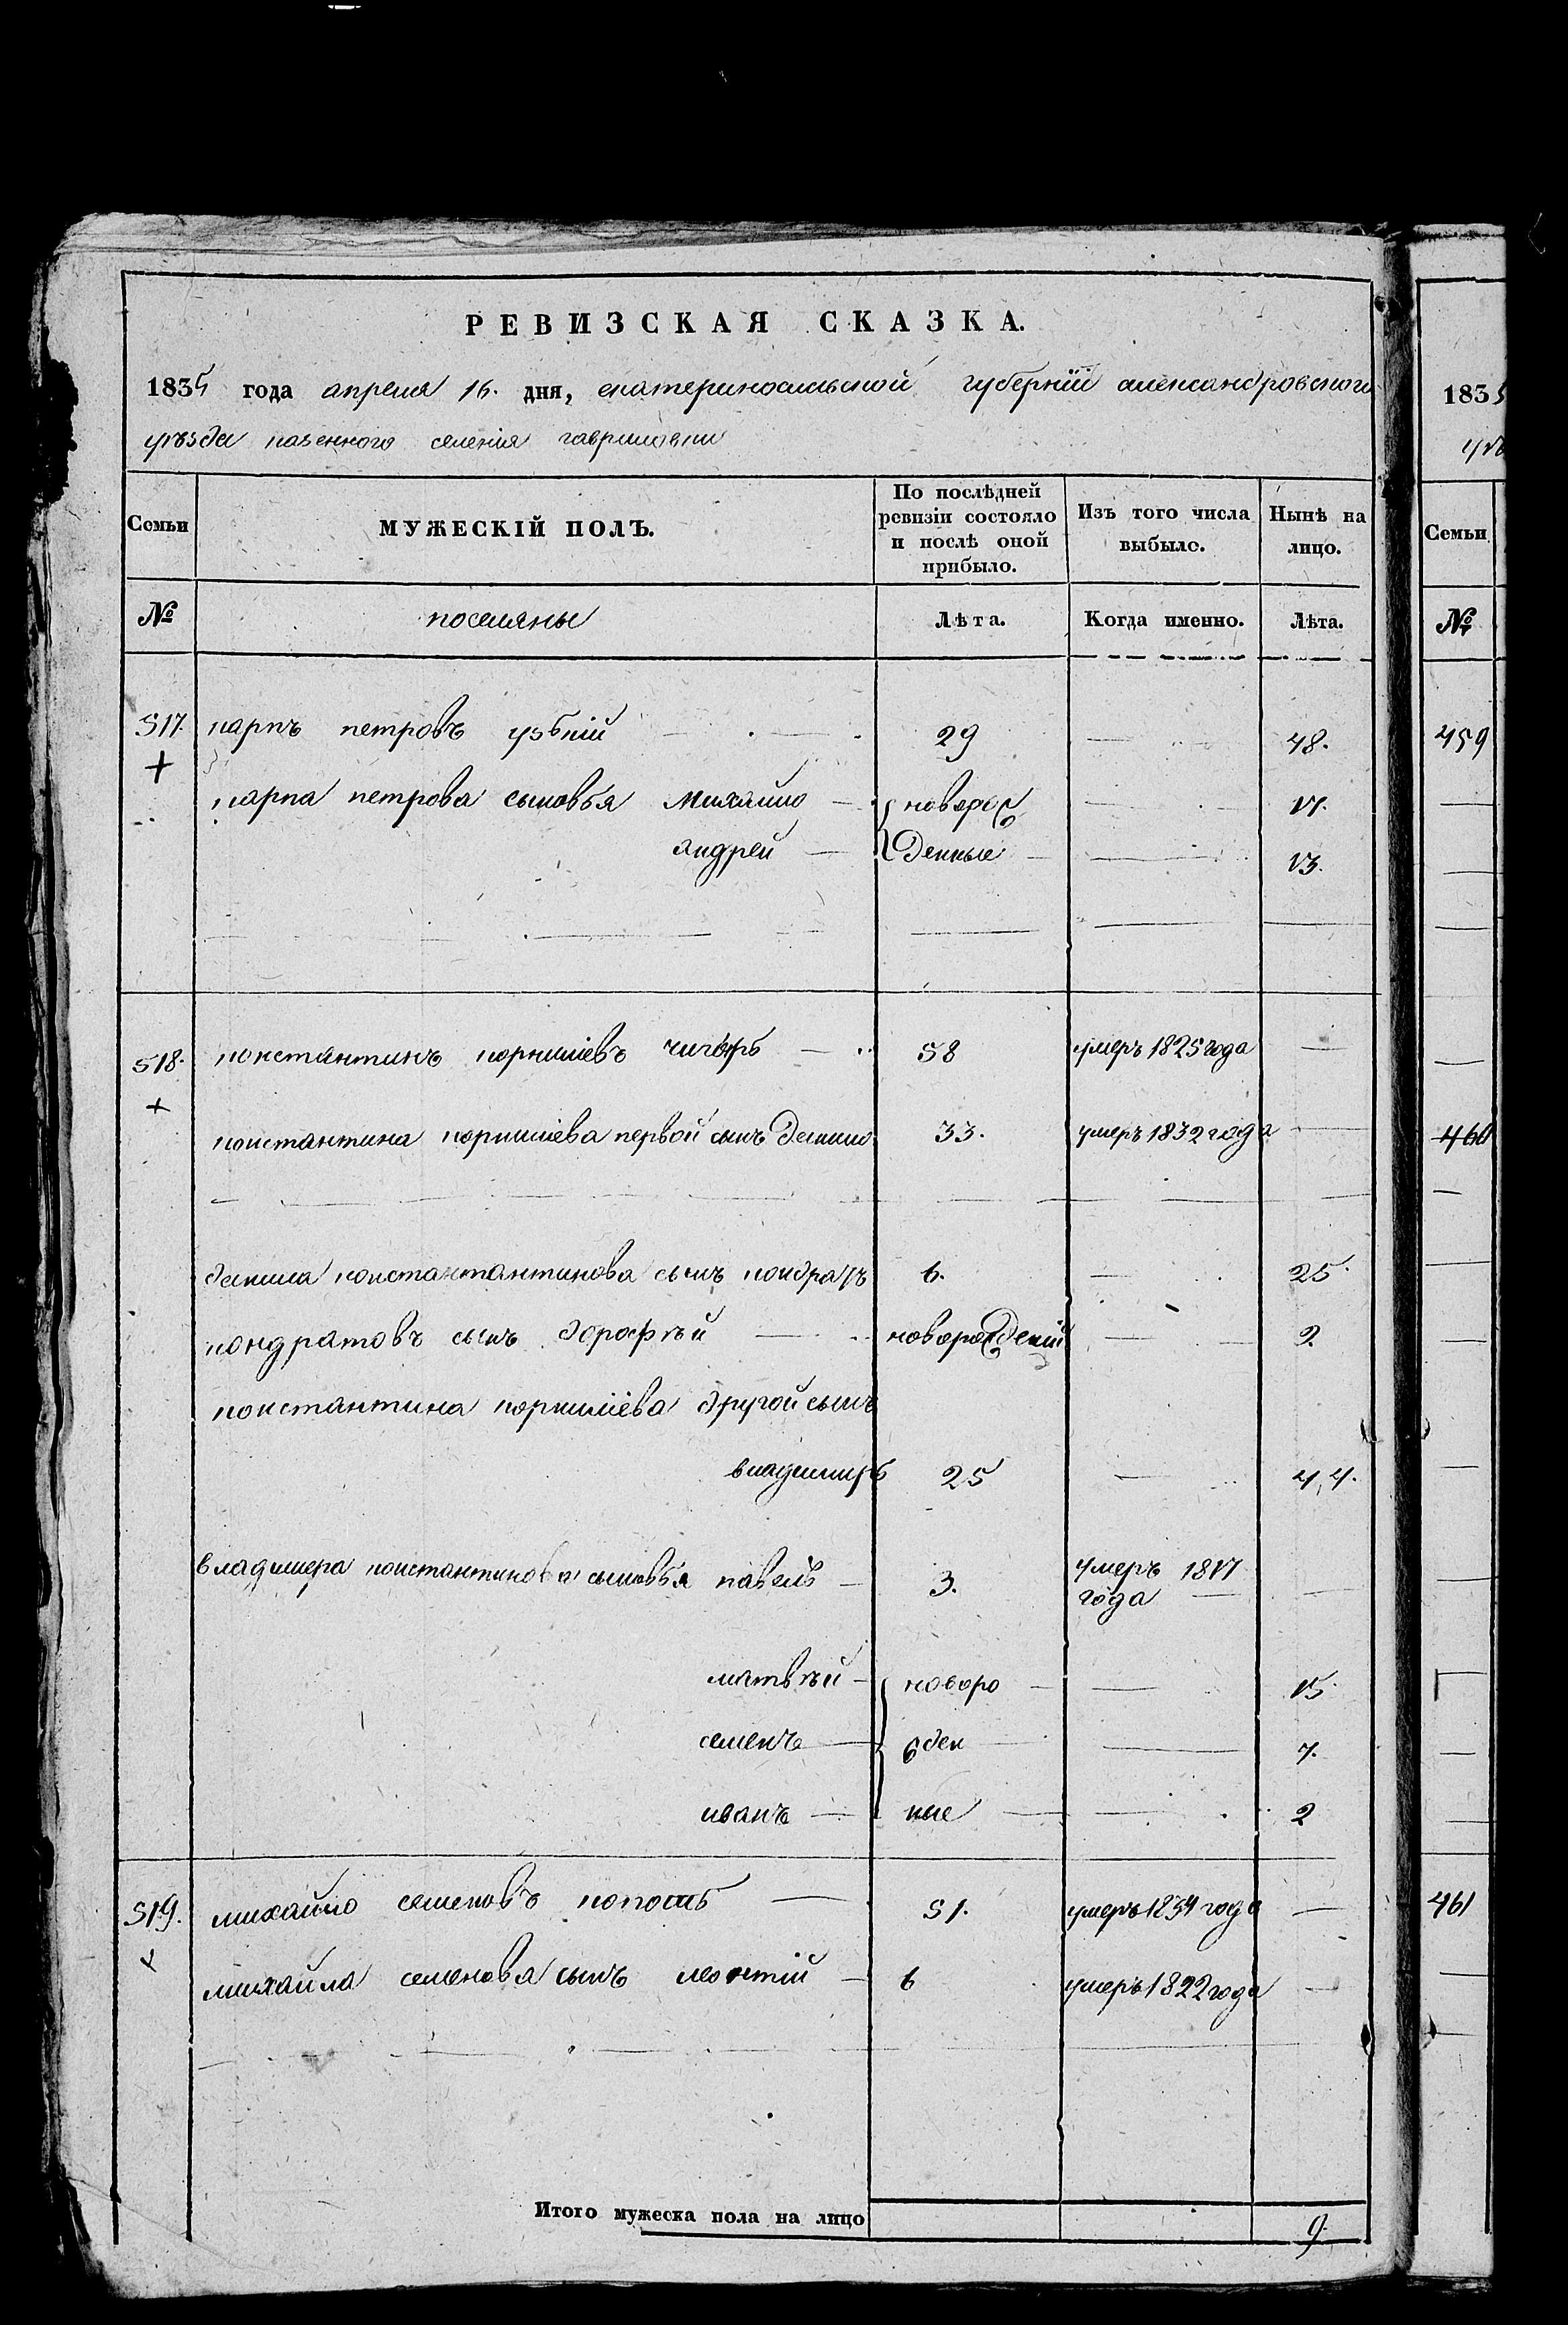 РЕВИЗСКАЯ СКАЗКА.
1835 года апреля 16. дня, екатеринославской губернїи александровского
уѣзда казенного селенія гавриловки
Семьи МУЖЕСКІЙ ПОЛЪ. По послѣдней ревизіи состояло и послѣ оной прибыло. Изъ того числа выбыло. Нынѣ на лицо.
№ поселяны Лѣта. Когда именно. Лѣта.
517. карпъ петровъ 29 48.
карпа петрова сыновья михайло новорож 17.
андрей денные 13.
518. константинъ корнилiевъ 58 умеръ 1825 года
константина корнилiева первой сынъ данило 33. умеръ 1832 года
данила константантинова сынъ кондратъ 6. 25.
кондратовъ сынъ дорофѣй новорожденій 2.
константина корнилiева другой сынъ
владимиръ 25 44.
владимера константинова сыновья павелъ 3. умеръ 1817
года
матвѣй новоро 15.
семенъ жден 7.
иванъ ные 2
519. михайло семеновъ 51. умеръ 1834 года
михайла семенова сынъ леонтій 6 умеръ 1822 года
Итого мужеска пола на лицо 9.
183
Семьи
№
459
460
461